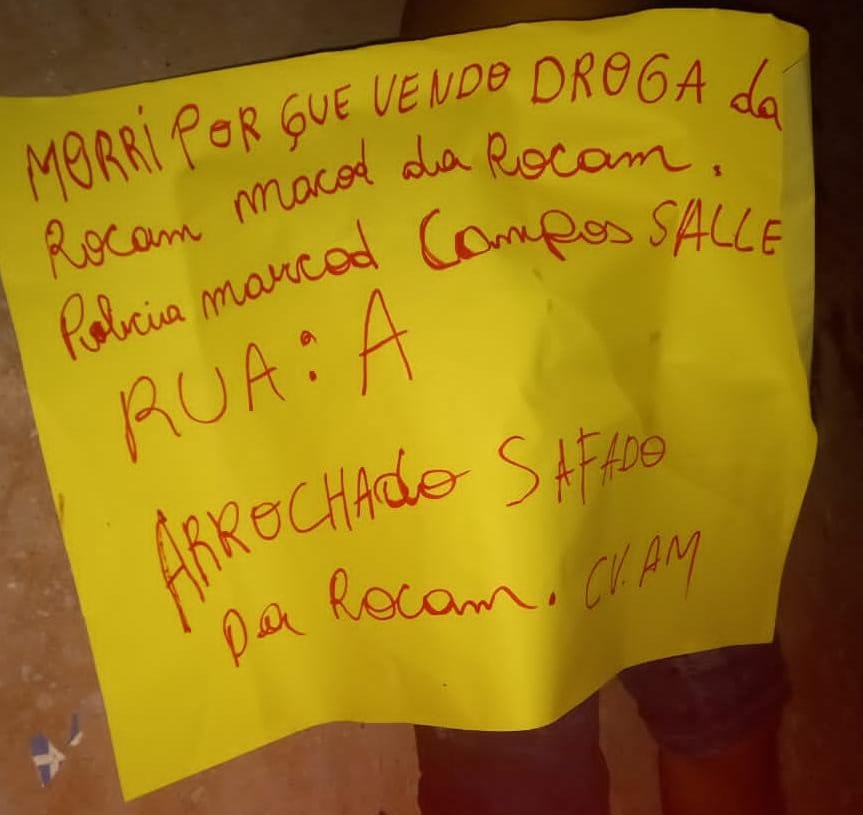 MORRi POR QUE VENDO DROGA da
Rocam macod da Rocam.
Policia marcod Campos SALLE
RUA: A
ARROCHAdo SAFADO
Da Rocam. CV. AM